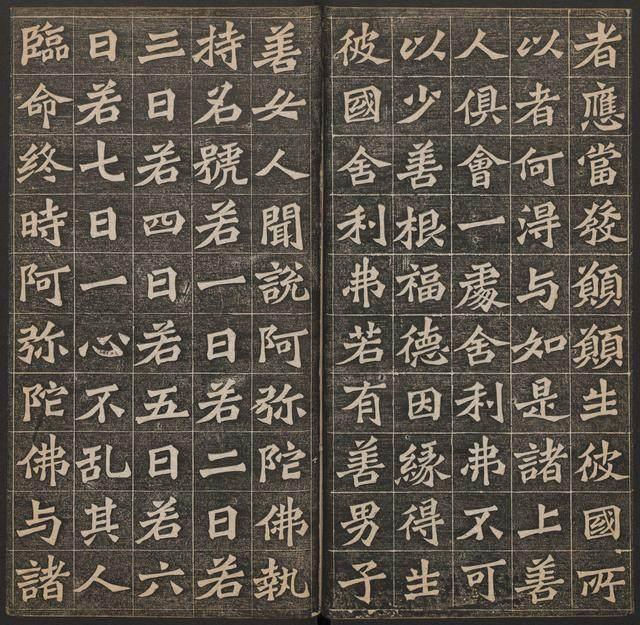 者應當發願願生彼國所
以者何淂与如是諸上善
人俱會一處舍利弗不可
以少善根福德因緣得生
彼國舍利弗若有善男子
善女人聞說阿弥陀佛執
持名號若一日若二日若
三日若四日若五日若六
日若七日一心不乱其人
臨命终時阿弥陀佛与諸